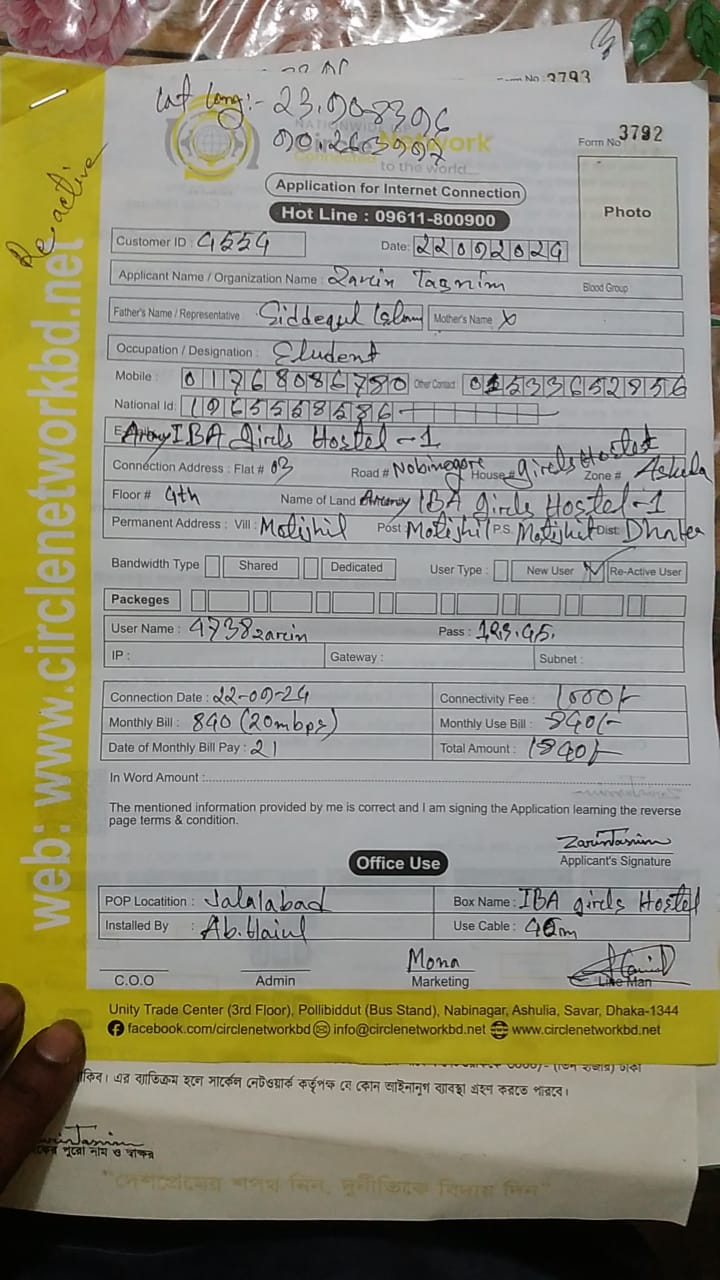 Form No 3793
Lat Long:- 23.908396
90.263997
NATIONWIDE
Circle Network
Connected to the world...
Form No 3792
Re active
Photo
Application for Internet Connection
Hot Line : 09611-800900
Customer ID : 4554
Date: 22092024
Applicant Name / Organization Name : Zarin Tasnim
Blood Group
Father's Name / Representative Siddequl Islam Mother's Name X
Occupation / Designation : Student
Mobile : 01768086780 Other Contact
National Id:
Army IBA girls Hostel-1
Connection Address : Flat # 03 Road # Nobinogore House # girls Hostel Zone #
Floor # 4th Name of Land Army IBA girls Hostel-1
Permanent Address : Vill : Motijhil Post Motijhil P.S. Motijhil Dist: Dhaka
Bandwidth Type Shared Dedicated User Type : New User Re-Active User
Packeges
User Name : 4738zarin Pass :
IP : Gateway : Subnet :
Connection Date : 22-09-24 Connectivity Fee : 1000/-
Monthly Bill : 840 (20mbps) Monthly Use Bill : 840/-
Date of Monthly Bill Pay : 21 Total Amount : 1840/-
In Word Amount :
The mentioned information provided by me is correct and I am signing the Application learning the reverse
page terms & condition.
Zarin Tasnim
Office Use
Applicant's Signature
POP Locatition : Jalalabad Box Name : IBA girls Hostel
Installed By : Use Cable :
Mona
C.O.O Admin Marketing Line Man
Unity Trade Center (3rd Floor), Pollibiddut (Bus Stand), Nabinagar, Ashulia, Savar, Dhaka-1344
facebook.com/circlenetworkbd info@circlenetworkbd.net www.circlenetworkbd.net
web: www.circlenetworkbd.net
থাকিব। এর ব্যতিক্রম হলে সার্কেল নেটওয়ার্ক কর্তৃপক্ষ যে কোন আইনানুগ ব্যাবস্থা গ্রহণ করতে পারবে।
Zarin Tasnim
পুরো নাম ও স্বাক্ষর
"দেশপ্রেমের শপথ নিন, দুর্নীতিকে বিদায় দিন"